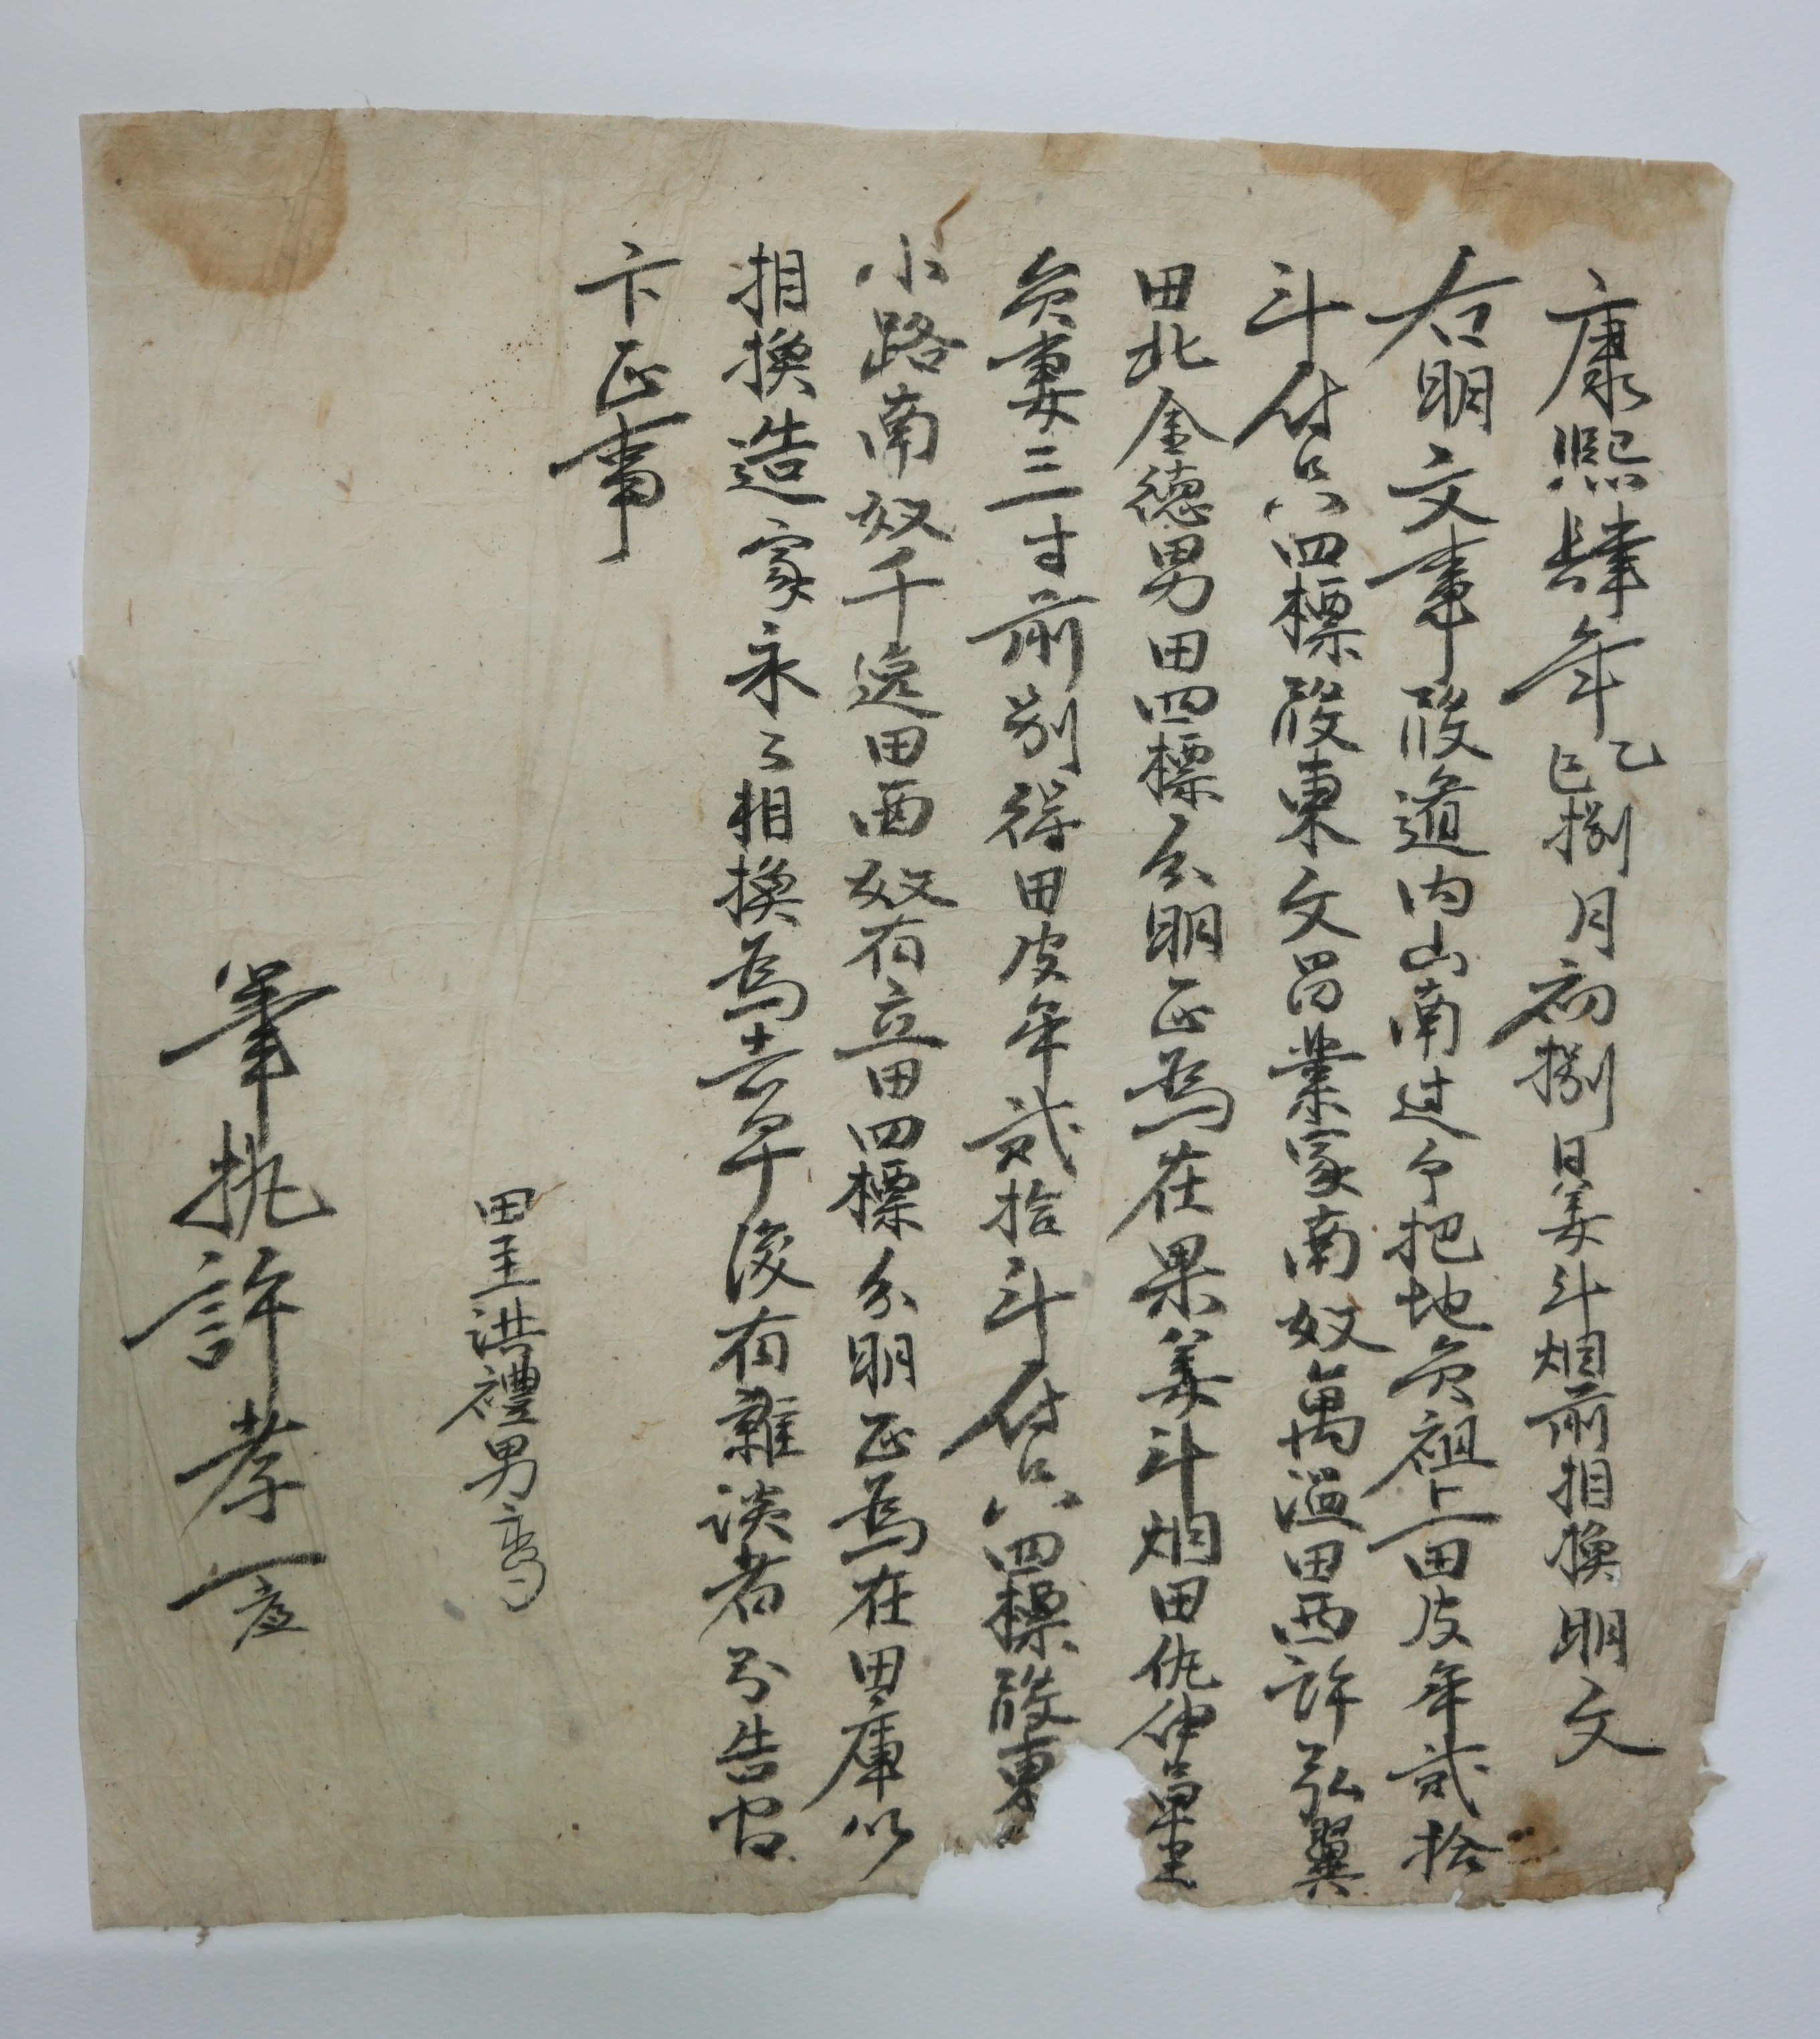 康熙肆年乙巳捌月初捌日姜斗烟前相換明文
右明文事段道內山南过 把地矣祖上田皮年貳拾
斗付只四標段東文昌業家南奴萬溢田西許弘翼
田北金德男田四標分明正爲在果姜斗烟田 伸
矣妻三寸前別得田皮年貳拾斗付只四標段東
小路南奴千 田西奴有立田四標分明正爲在田庫以
相換造家永〻相換爲去乎後有雜談者 告官
卞正事
田主洪禮男
筆執許孝一